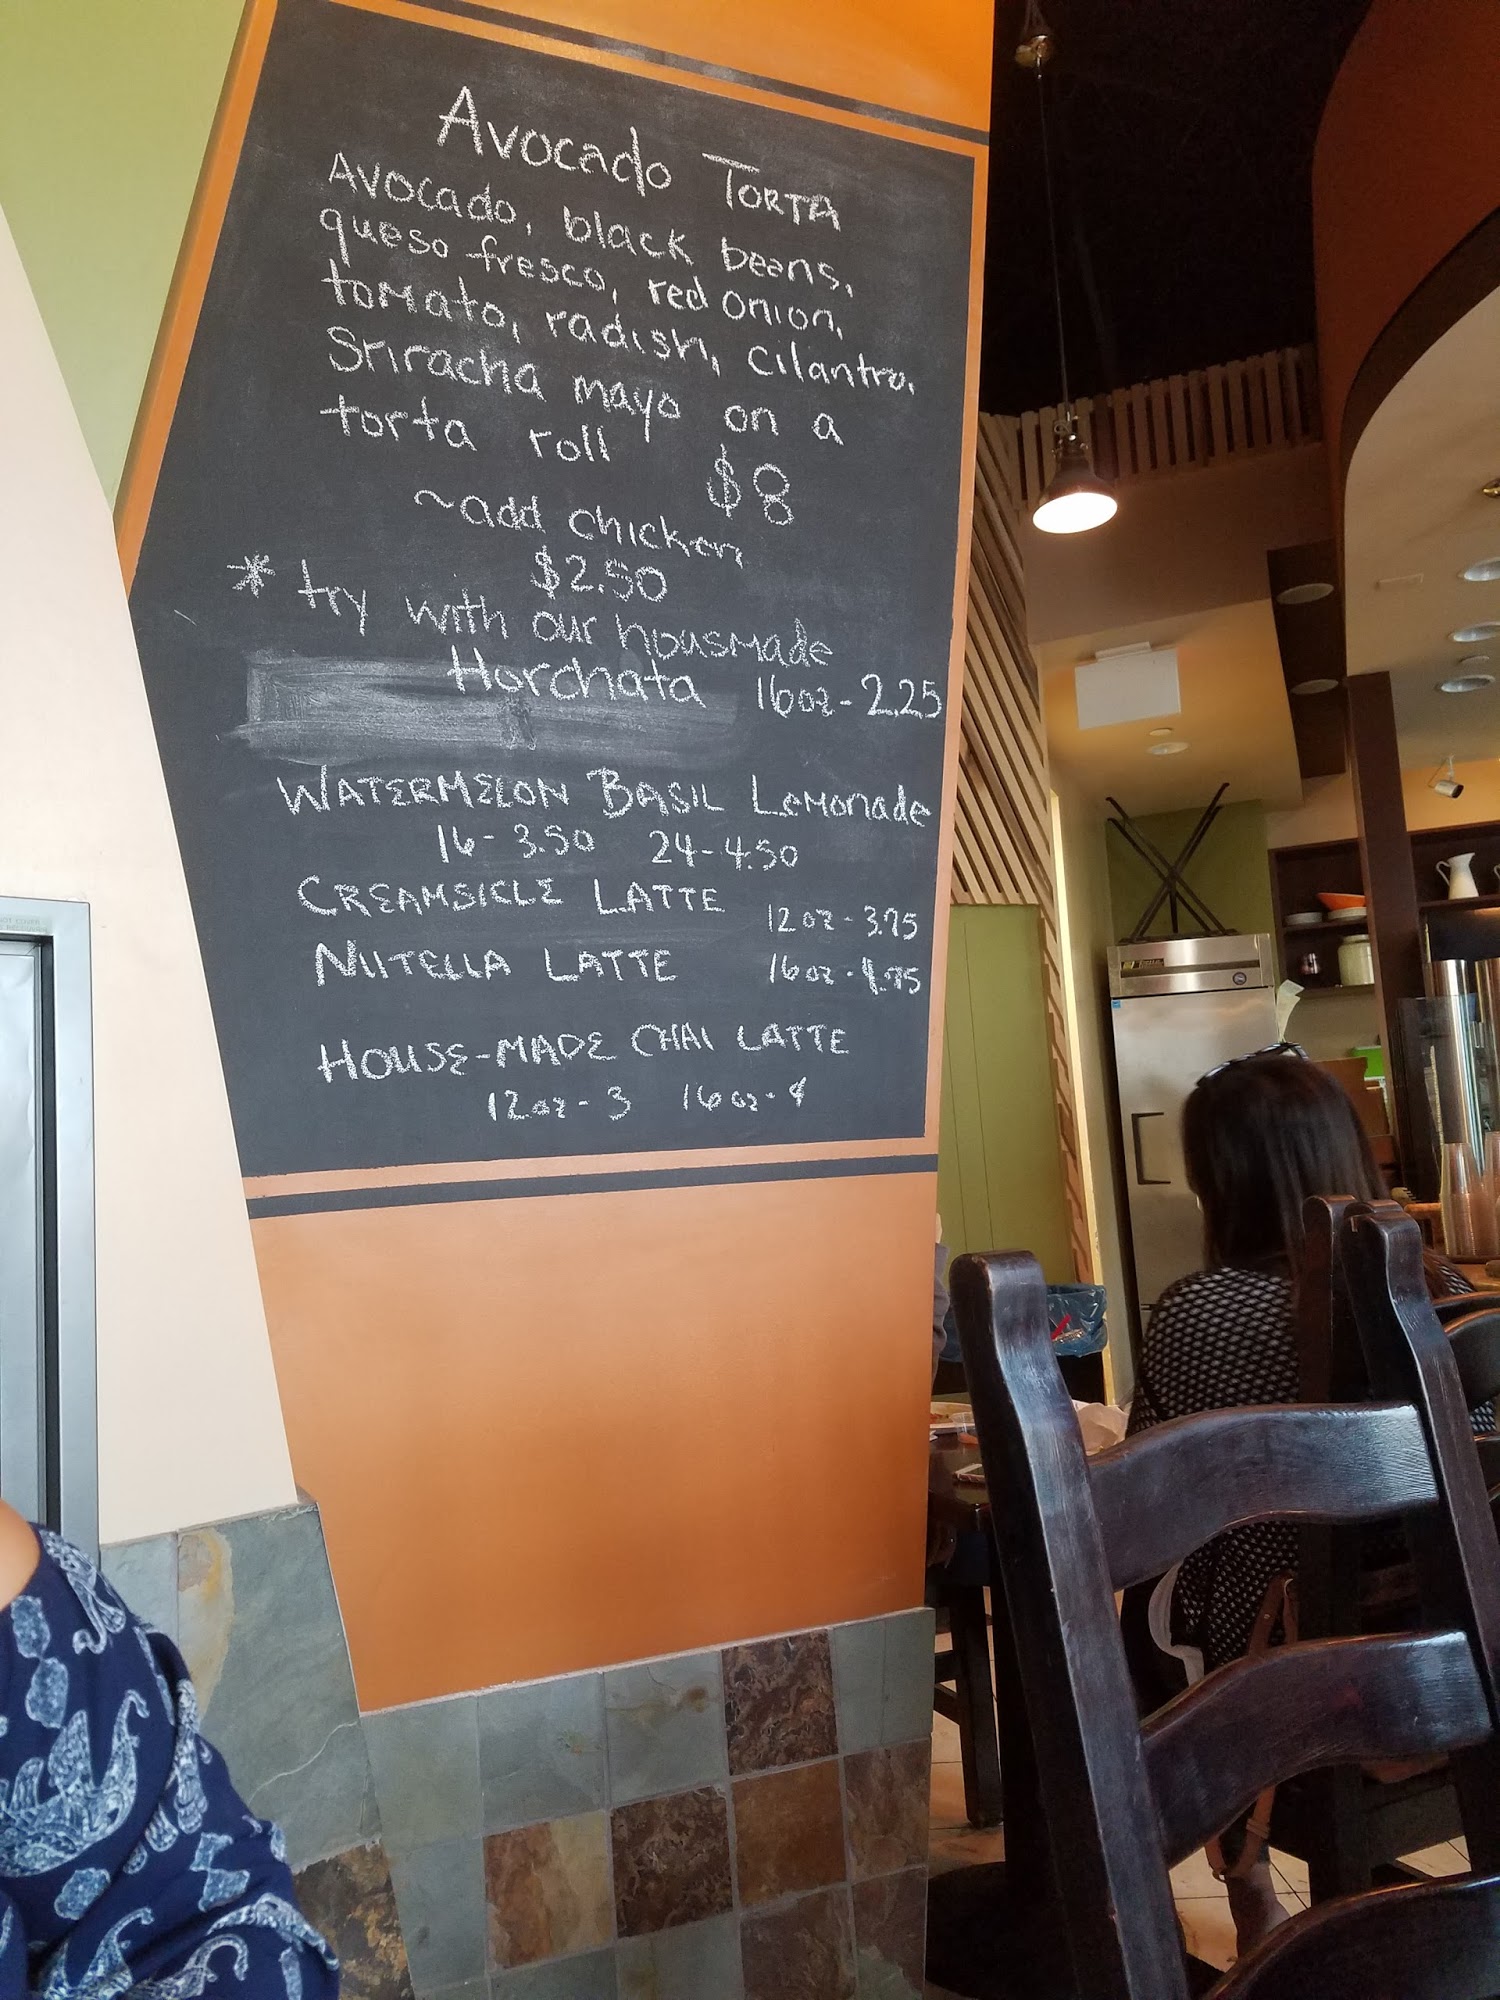 Avocado TORTA
Avocado, black beans,
queso fresco, red onion,
tomato, radish, cilantro,
Sriracha mayo on a
torta roll
$8
~add chicken
$2.50
* try with our housmade
Horchata 16oz-2.25
WATERMELON BASIL Lemonade
16-3.50 24-4.50
CREAMSICLE LATTE 12oz-3.75
NUTELLA LATTE 16oz-4.75
HOUSE-MADE CHAI LATTE
12oz-3 16oz-4